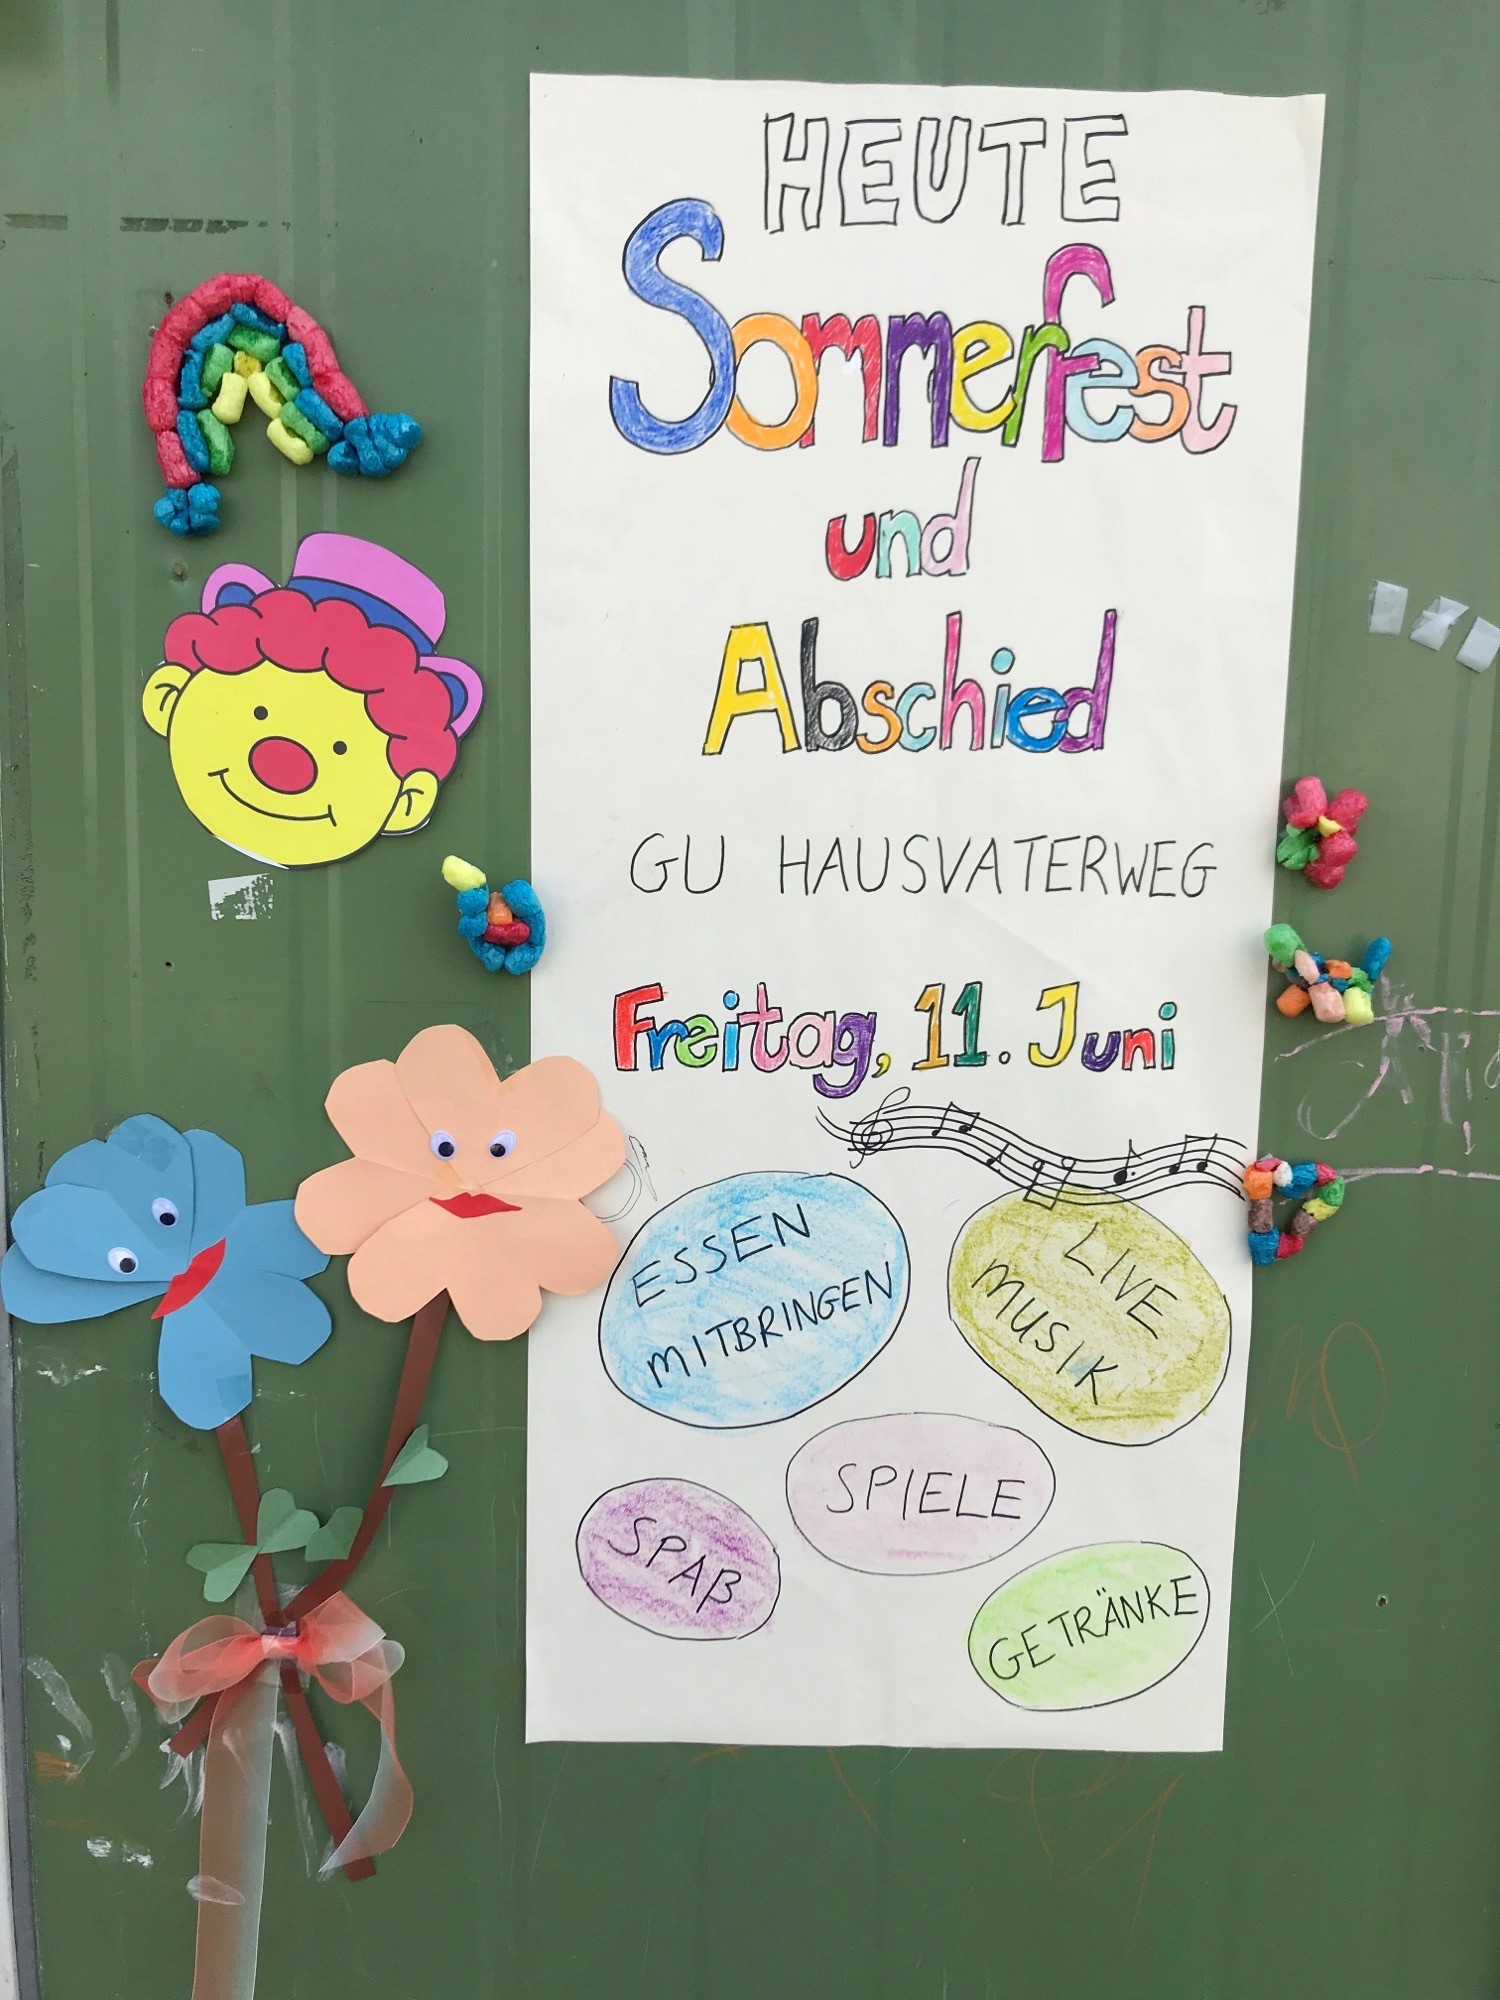 HEUTE
Sommerfest
und
Abschied
GU HAUSVATERWEG
Freitag, 11. Juni
ESSEN
MITBRINGEN
LIVE
MUSIK
SPIELE
SPAß
GETRÄNKE